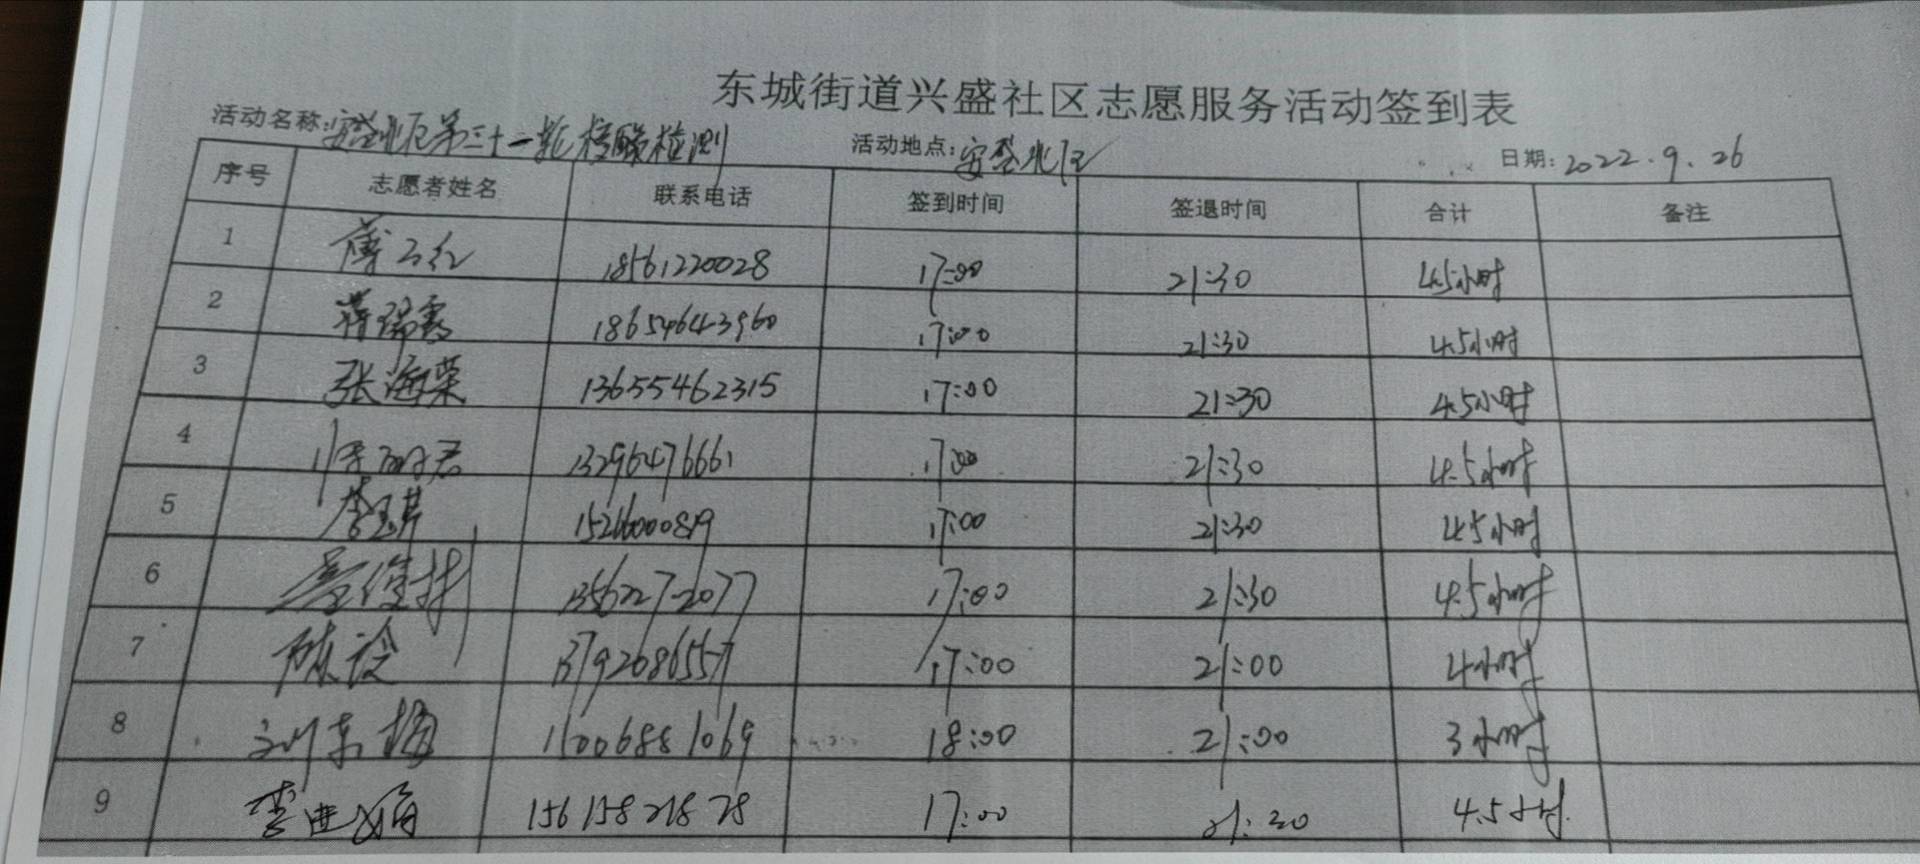 东城街道兴盛社区志愿服务活动签到表
活动名称:安盛北区第三十一轮核酸检测 活动地点:安盛北区 日期:2022.9.26
序号 志愿者姓名 联系电话 签到时间 签退时间 合计 备注
1 18561220028 17:00 21:30 4.5小时
2 蒋瑞霞 18654643960 17:00 21:30 4.5小时
3 张海荣 13655462315 17:00 21:30 4.5小时
4 13296476661 17:00 21:30 4.5小时
5 15266000819 17:00 21:30 4.5小时
6 17:00 21:30 4.5小时
7 13792086557 17:00 21:00 4小时
8 刘东梅 18:00 21:00 3小时
9 15615821878 17:00 21:30 4.5小时